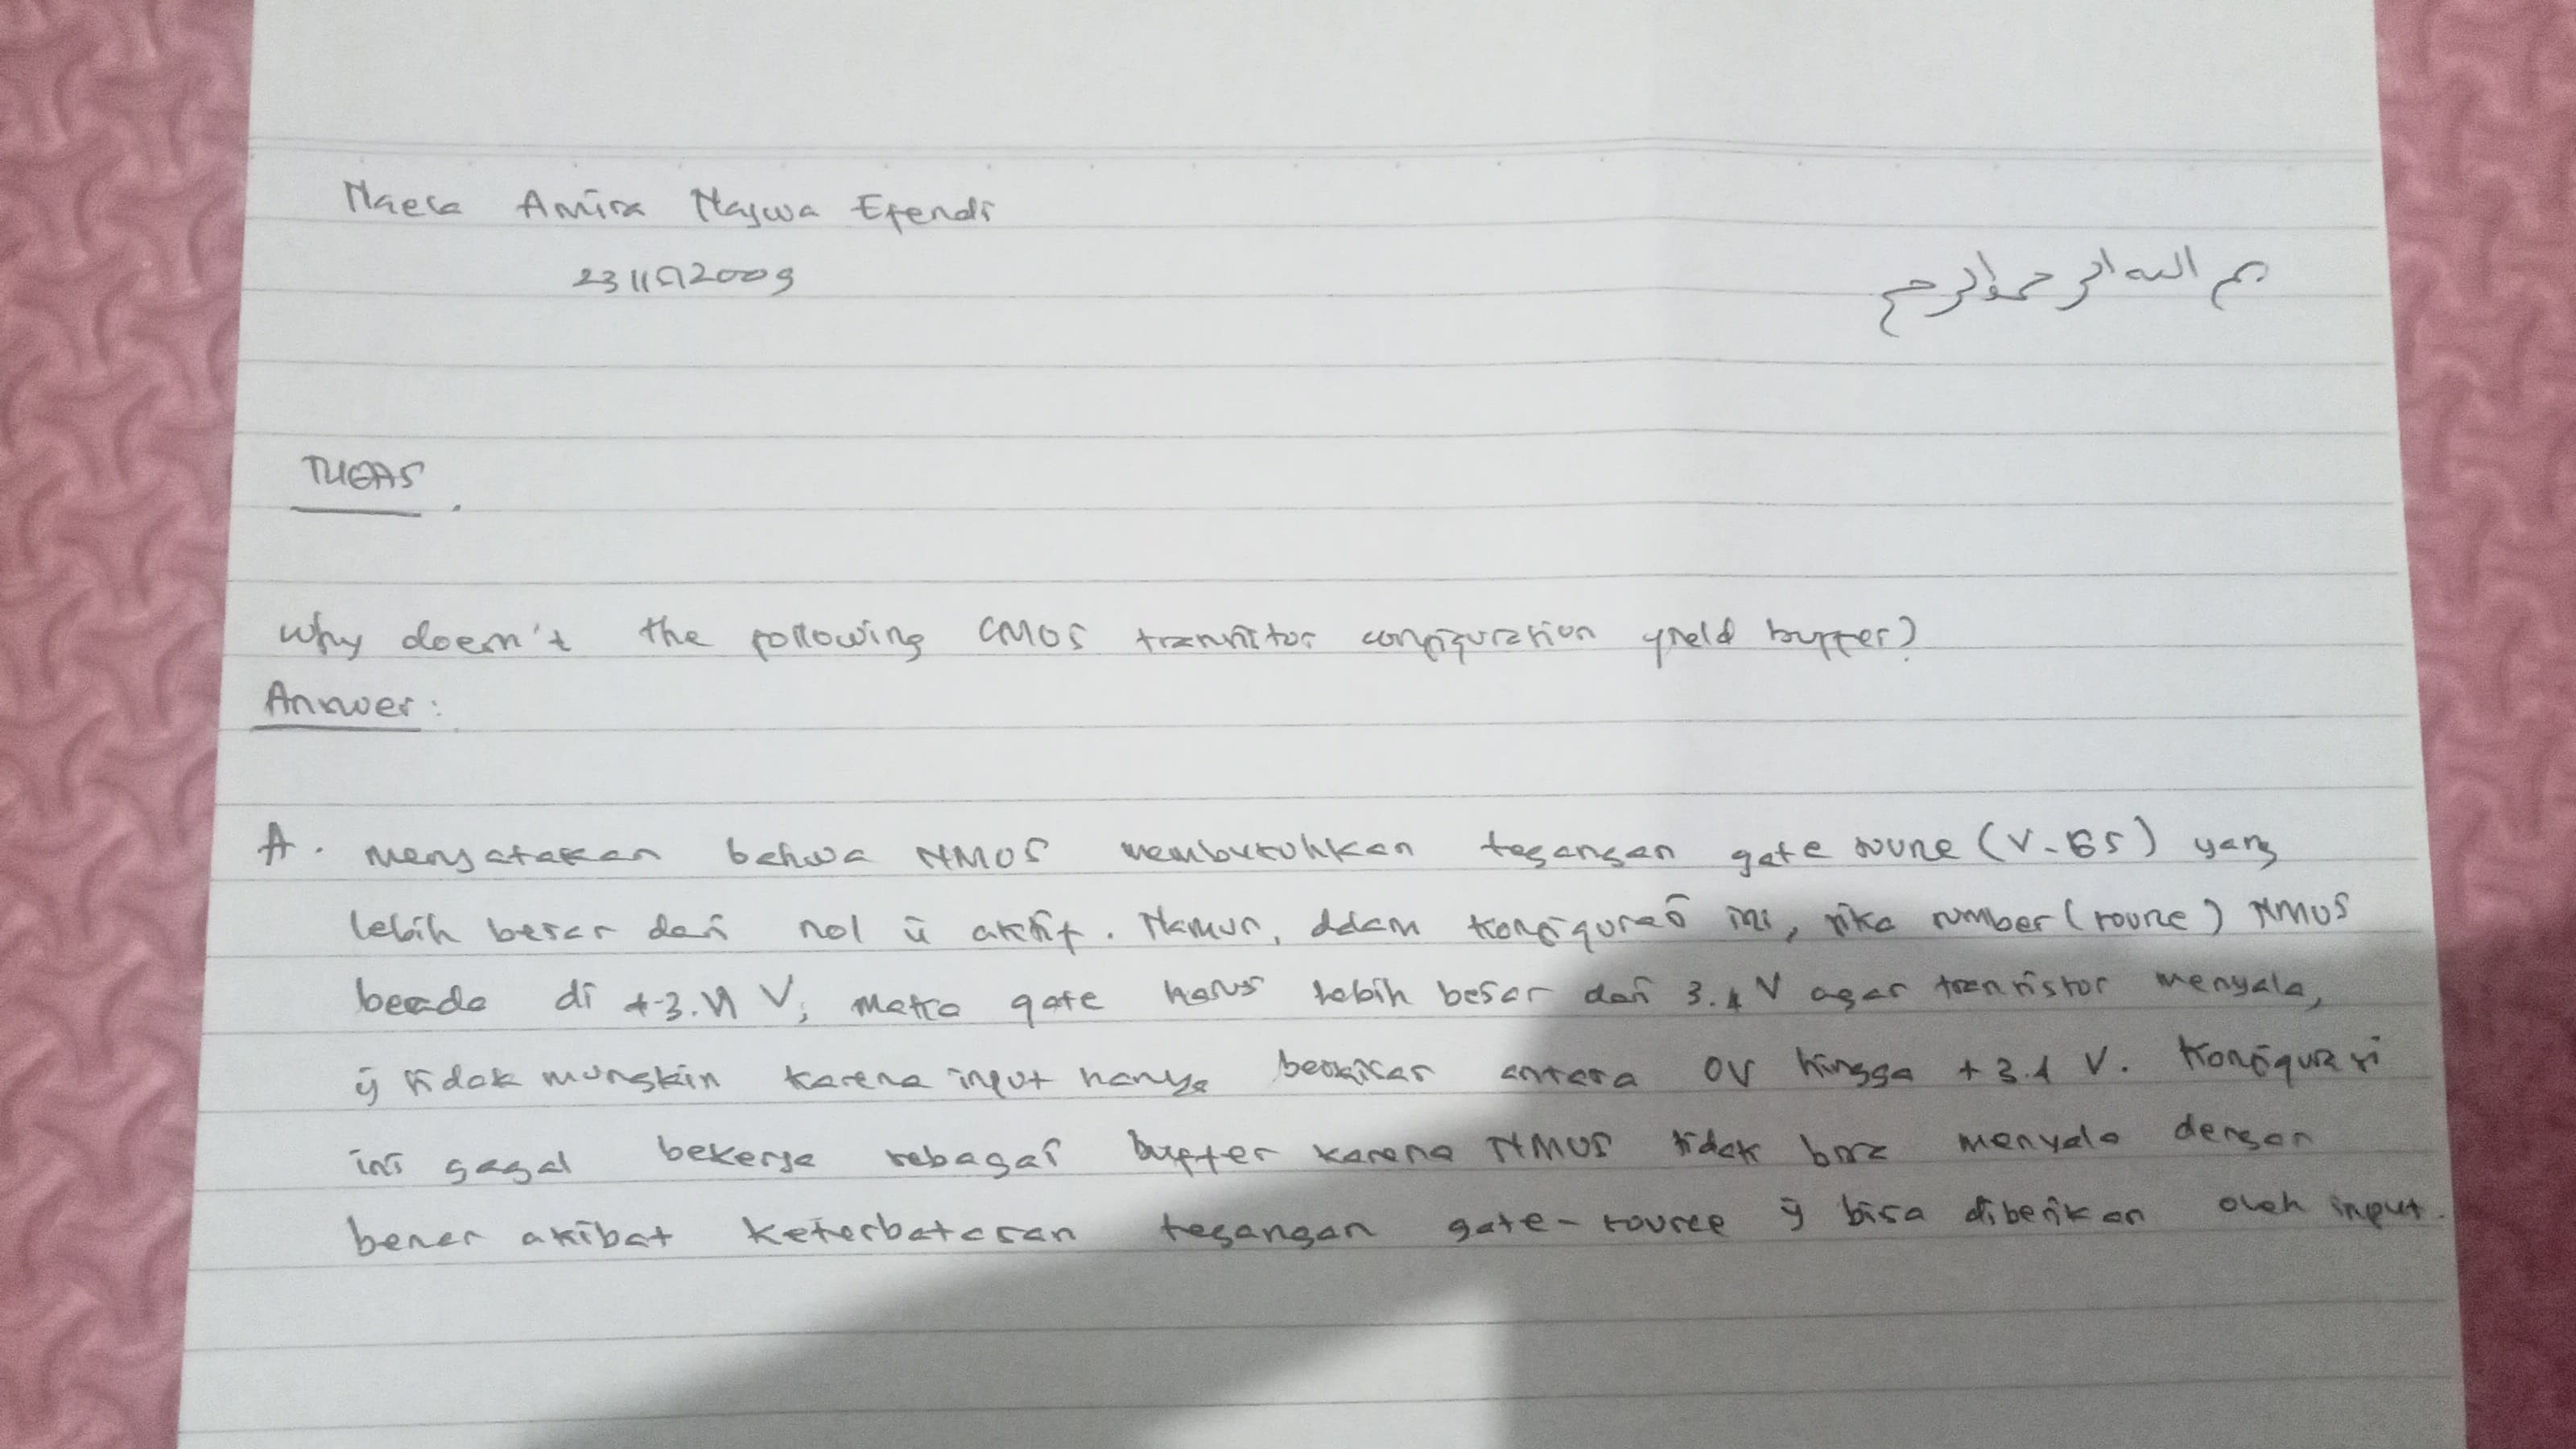 Naela Amira Najwa Efendi
بسم الله الرحمن الرحيم
TUGAS.
Why doesn't the following CMOS transistor configuration yield buffer?
Answer:
A. Menyatakan bahwa NMOS membutuhkan tegangan gate source (V-GS) yang
lebih besar dari nol ū aktif. Namun, dalam konfigurasi ini, jika sumber (source) NMOS
berada di V, maka gate harus lebih besar dari 3.1 V agar transistor menyala,
ȳ tidak mungkin karena input hanya berkisar antara 0V hingga +3.1 V. Konfigurasi
ini gagal bekerja sebagai buffer karena NMOS tidak bisa menyala dengan
benar akibat keterbatasan tegangan gate-source ȳ bisa diberikan oleh input.